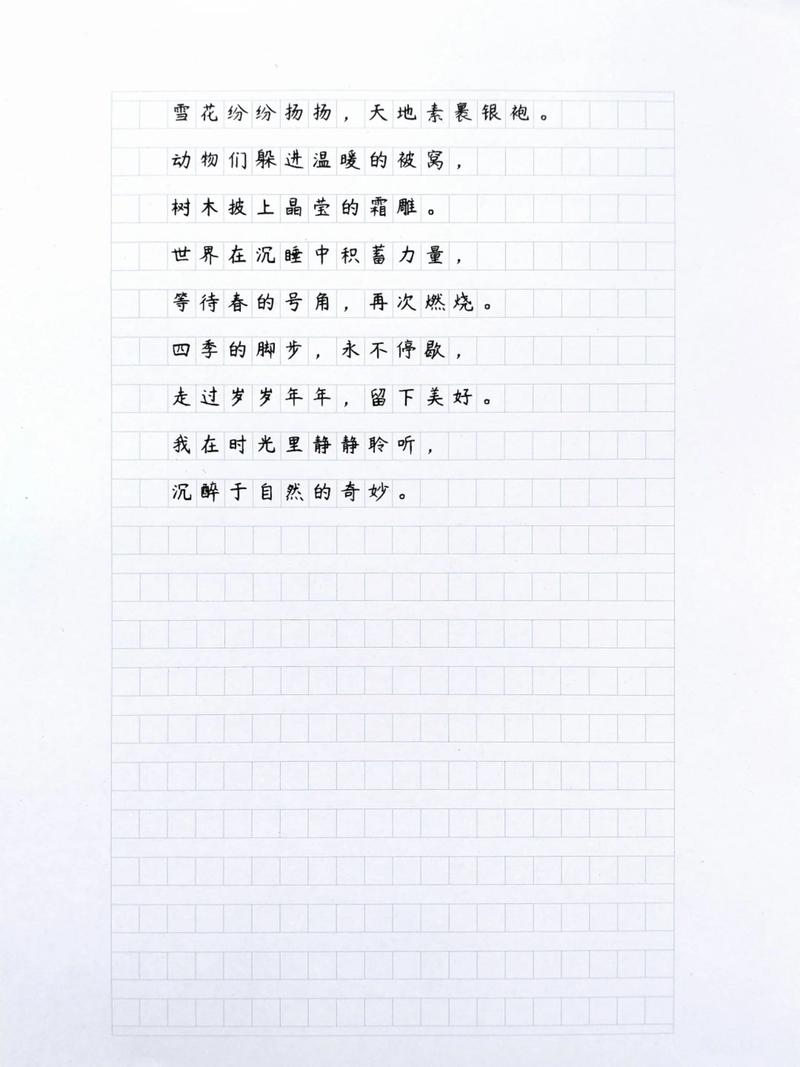 雪花纷纷扬扬，天地素裹银袍。
动物们躲进温暖的被窝，
树木披上晶莹的霜雕。
世界在沉睡中积蓄力量，
等待春的号角，再次燃烧。
四季的脚步，永不停歇，
走过岁岁年年，留下美好。
我在时光里静静聆听，
沉醉于自然的奇妙。